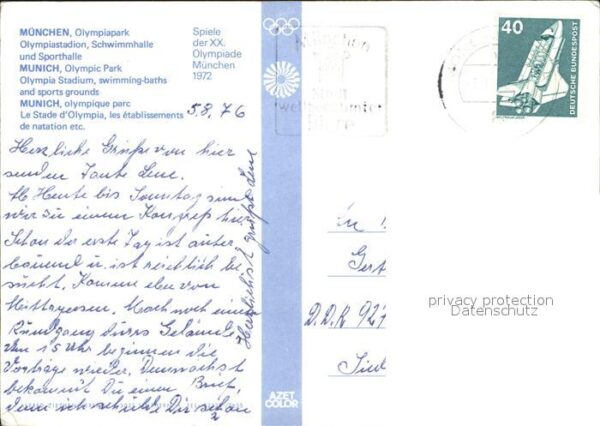 MÜNCHEN, Olympiapark
Olympiastadion, Schwimmhalle
und Sporthalle
MUNICH, Olympic Park
Olympia Stadium, swimming-baths
and sports grounds
MUNICH, olympique parc
Le Stade d'Olympia, les établissements
de natation etc.
Spiele
der XX.
Olympiade
München
1972
5.8.76
Herzliche Grüße von hier
senden Tante Lene.
Ab Heute bis Sonntag sind
wir zu einem Kongreß hier.
Schon der erste Tag ist aufer
bauend u. ist reichlich be
sucht. Komme eben von
Mittagessen. Mach noch einen
Rundgang durrs Gelände
Um 15 Uhr beginnen die
Vorträge wieder. Demnächst
bekommst Du einen Brief,
denn ich schulde Dir schon
2
Herzlichst grüßt Lene
München
weltberühmter
Biere
40
DEUTSCHE BUNDESPOST
An
Gert
D.D.R 921
privacy protection
Datenschutz
AZET
COLOR